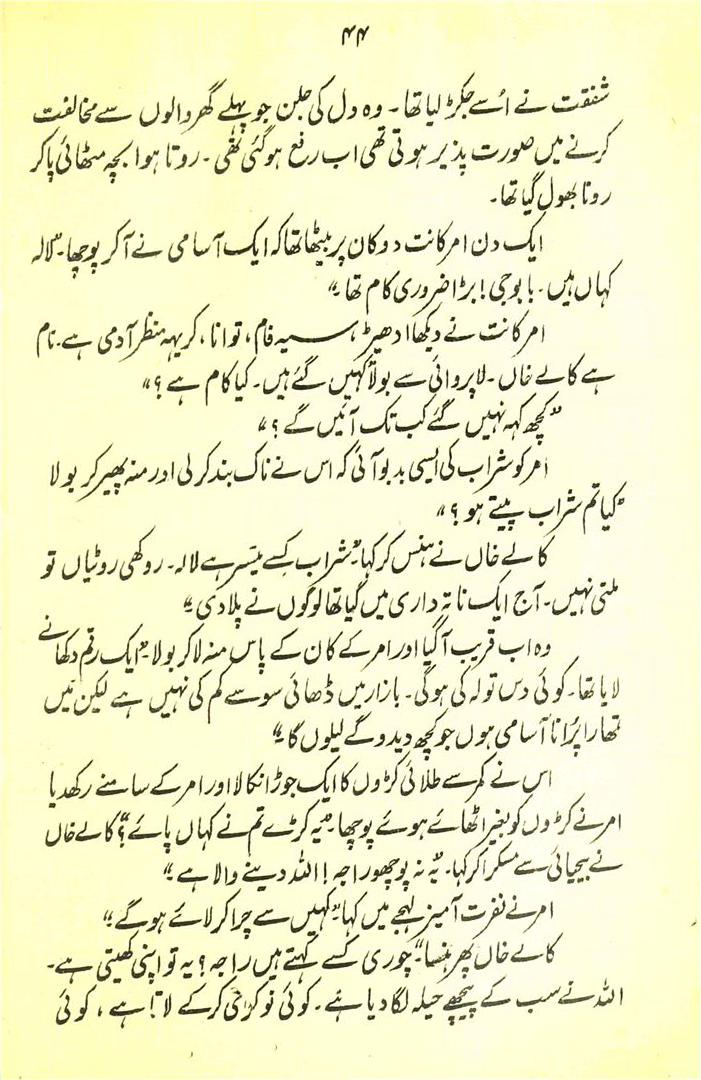 ۴۴
شفقت نے اُسے جکڑ لیا تھا۔ وہ دل کی جلن جو پہلے گھر والوں سے مخالفت
کرنے میں صورت پذیر ہوتی تھی اب رفع ہوگئی تھی۔ روتا ہوا بچہ مٹھائی پاکر
رونا بھول گیا تھا۔
ایک دن امرکانت دوکان پر بیٹھا تھا کہ ایک آسامی نے آکر پوچھا۔ "لالہ
کہاں ہیں۔ بابوجی! بڑا ضروری کام تھا۔"
امرکانت نے دیکھا ادھیڑ، سیہ فام، توانا، کریہہ منظر آدمی ہے۔ نام
ہے کالے خاں۔ لاپروائی سے بولا "کہیں گئے ہیں۔ کیا کام ہے؟"
"کچھ کہہ نہیں گئے کب تک آئیں گے؟"
امر کو شراب کی ایسی بدبو آئی کہ اس نے ناک بند کرلی اور منہ پھیر کر بولا
"کیا تم شراب پیتے ہو؟"
کالے خاں نے ہنس کر کہا۔ "شراب کسے میسّر ہے لالہ۔ روکھی روٹیاں تو
ملتی نہیں۔ آج ایک ناتہ داری میں گیا تھا لوگوں نے پلا دی۔"
وہ اب قریب آگیا اور امر کے کان کے پاس منہ لاکر بولا۔ "ایک رقم دکھانے
لایا تھا۔ کوئی دس تولہ کی ہوگی۔ بازار میں ڈھائی سو سے کم کی نہیں ہے لیکن میں
تمھارا پُرانا آسامی ہوں جو کچھ دیدو گے لیلوں گا۔"
اس نے کمر سے طلائی کڑوں کا ایک جوڑا نکالا اور امر کے سامنے رکھدیا
امر نے کڑوں کو بغیر اٹھائے ہوئے پوچھا۔ "یہ کڑے تم نے کہاں پائے؟" کالے خاں
نے بیحیائی سے مسکرا کر کہا۔ "یہ نہ پوچھو راجہ! اللہ دینے والا ہے۔"
امر نے نفرت آمیز لہجے میں کہا "کہیں سے چرا کر لائے ہوگے۔"
کالے خاں پھر ہنسا۔ "چوری کسے کہتے ہیں راجہ؟ یہ تو اپنی کھیتی ہے۔
اللہ نے سب کے پیچھے حیلہ لگا دیا ہے۔ کوئی نوکری کرکے لاتا ہے، کوئی